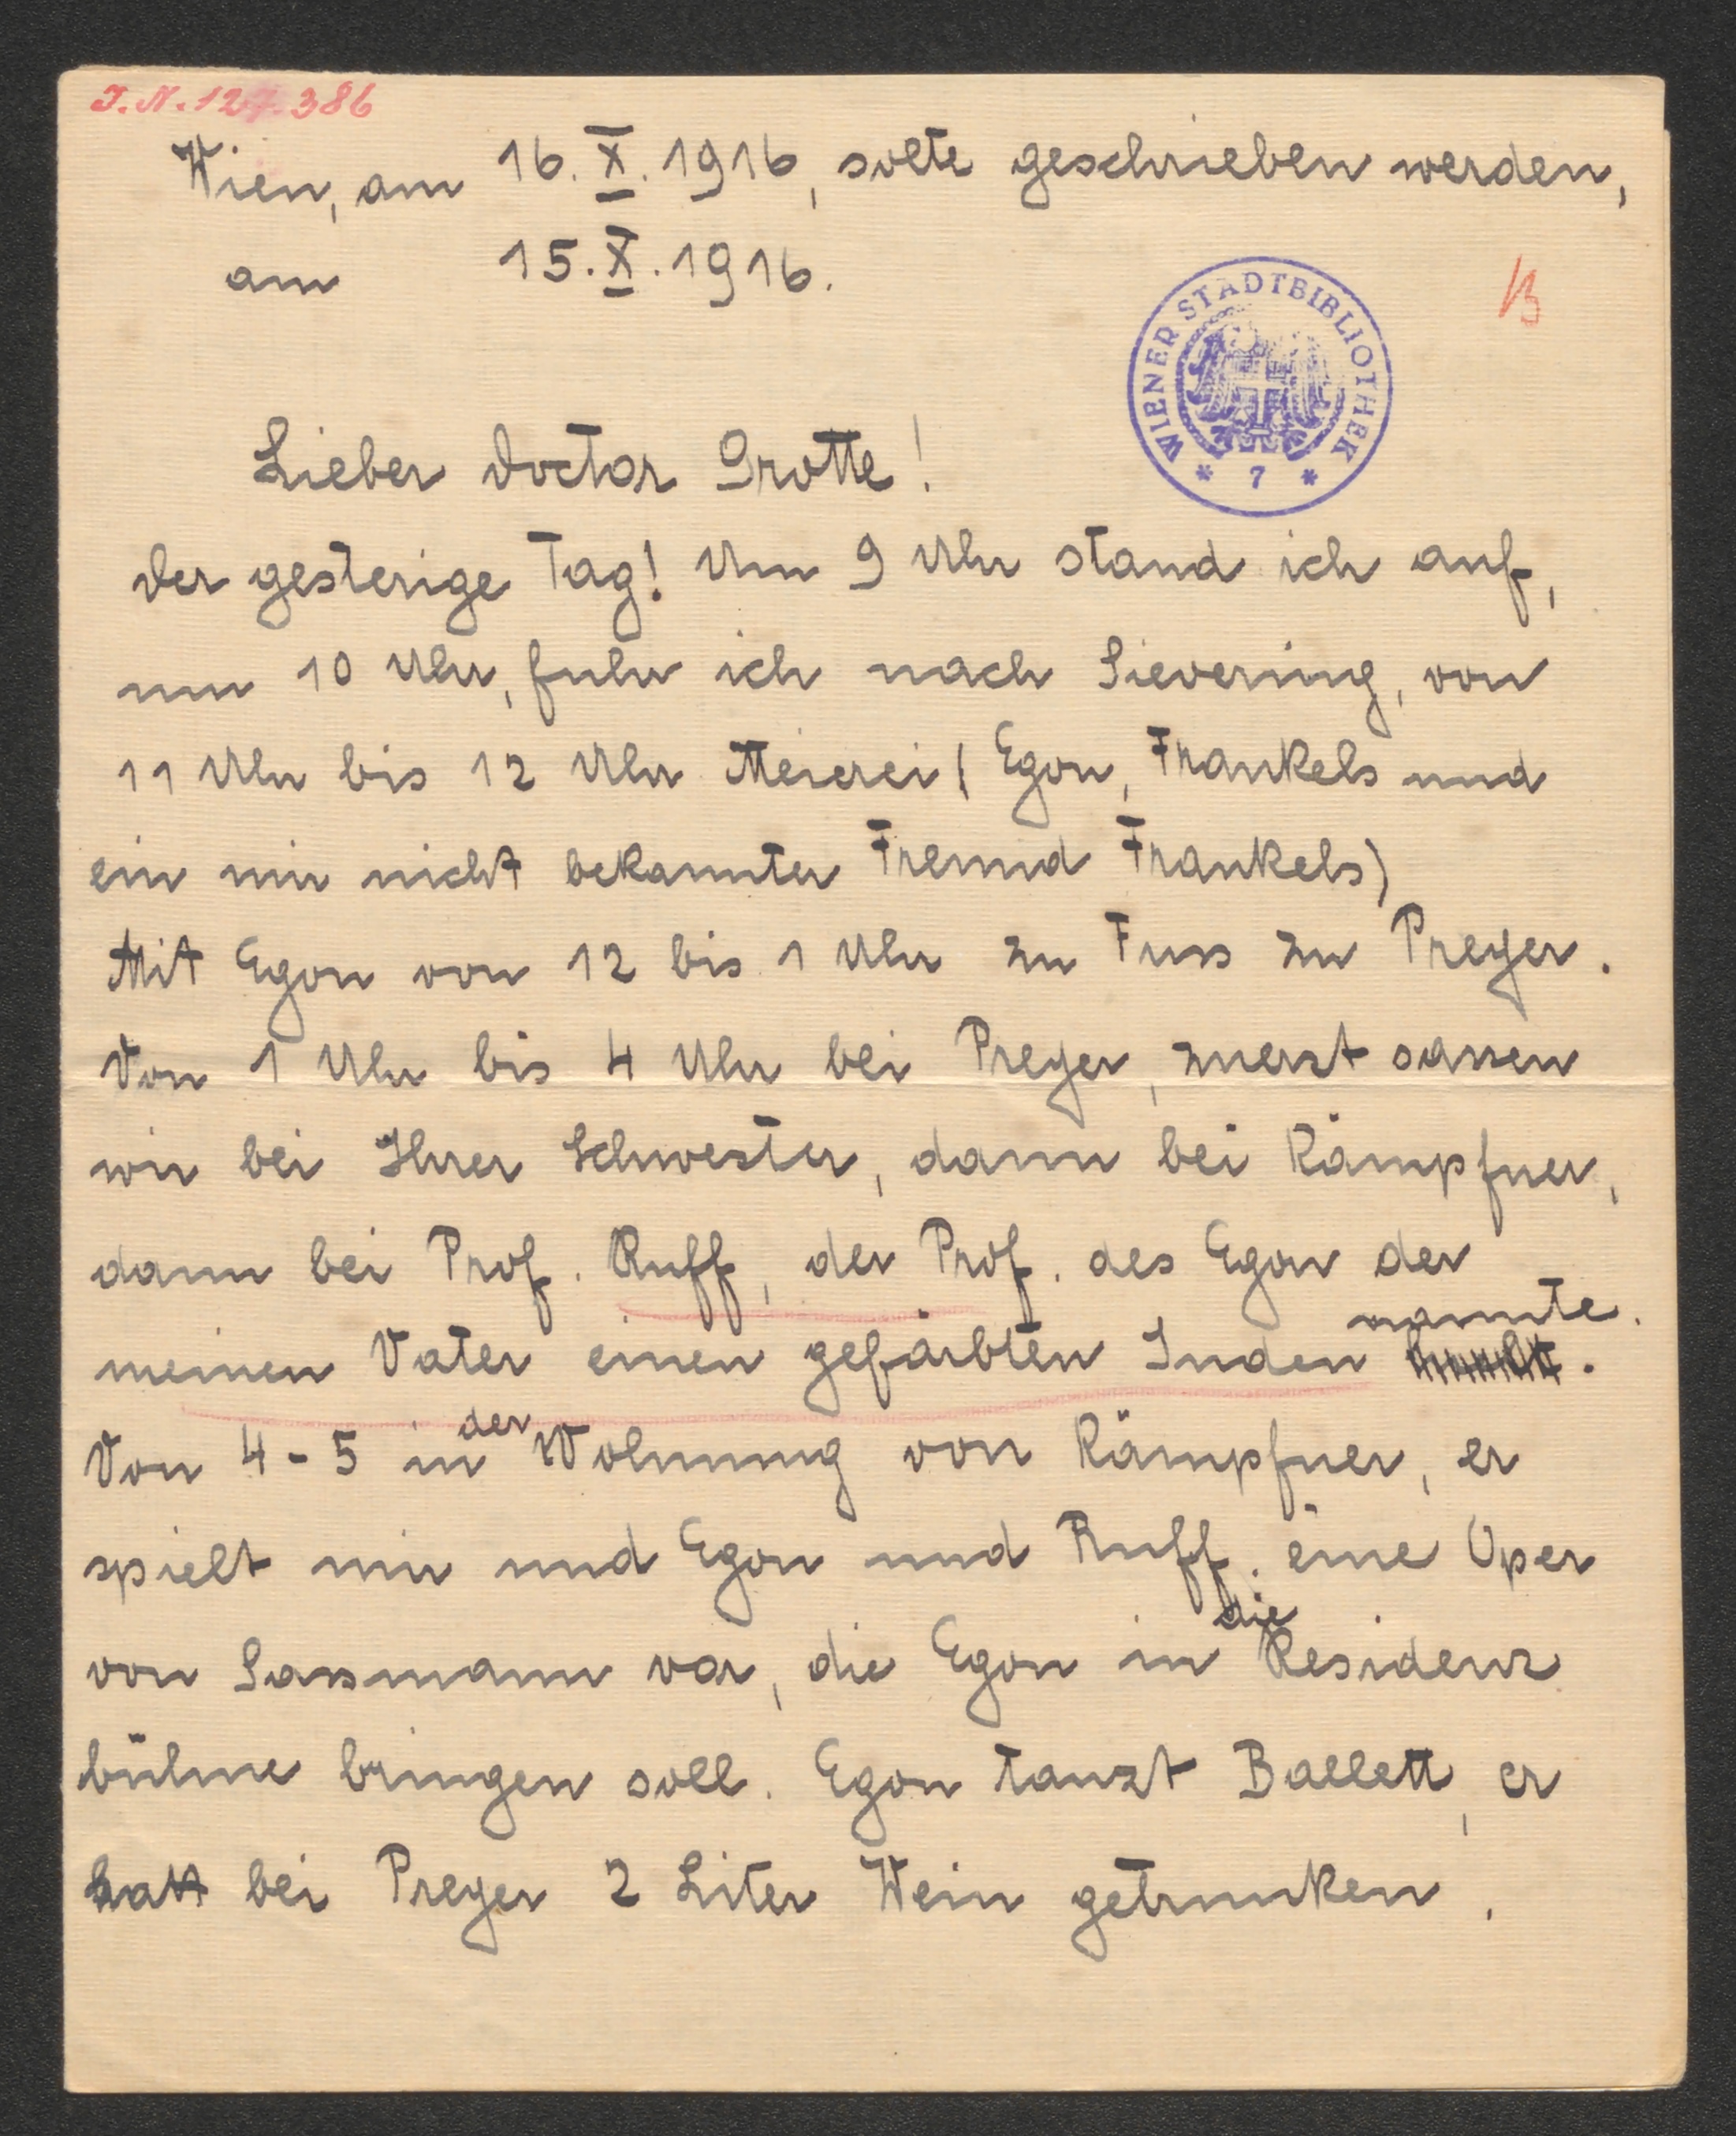 I.N. 127.386
Wien, am 16. X. 1916, solte geschrieben werden,
am 15. X. 1916.
B
WIENER STADTBIBLIOTHEK
* 7 *
Lieber Doctor Grotte!
Der gesterige Tag! Um 9 Uhr stand ich auf,
um 10 Uhr, fuhr ich nach Sievering, von
11 Uhr bis 12 Uhr Meierei (Egon, Frankels und
ein mir nicht bekannter Freund Frankels)
Mit Egon von 12 bis 1 Uhr zu Fuss zu Preyer.
Von 1 Uhr bis 4 Uhr bei Preyer, zuerst sassen
wir bei Ihrer Schwester, dann bei Kämpfner,
dann bei Prof. Ruff, der Prof. des Egon der
meinen Vater einen gefärbten Juden nannte.
Von 4-5 in der Wohnung von Kämpfner, er
spielt mir und Egon und Ruff. eine Oper
von Sassmann vor, die Egon in die Residenz
bühne bringen soll. Egon tanzt Ballett, er
hatt bei Preyer 2 Liter Wein getrunken.